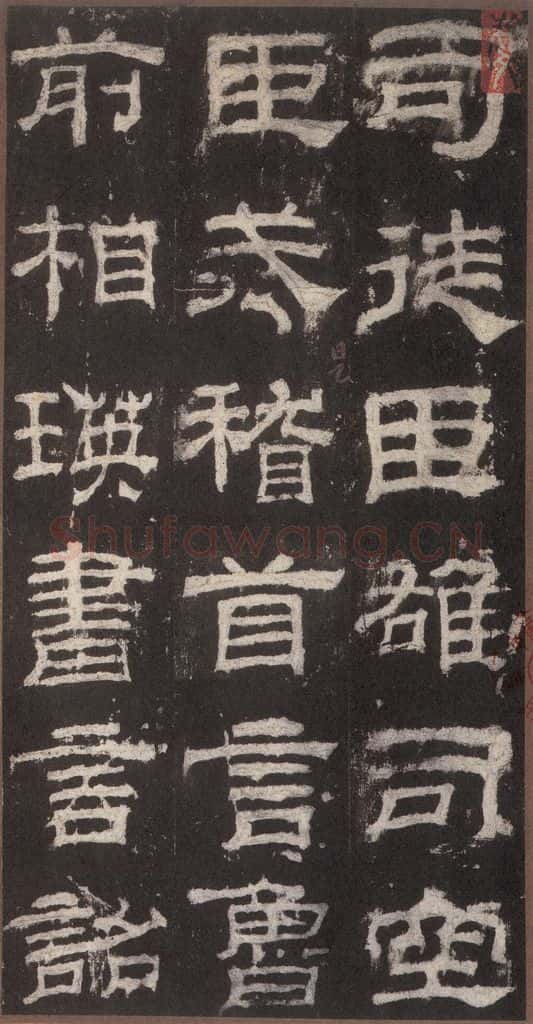 司徒臣雄司空
臣戒稽首言魯
前相瑛書言詔
Shufawang.CN